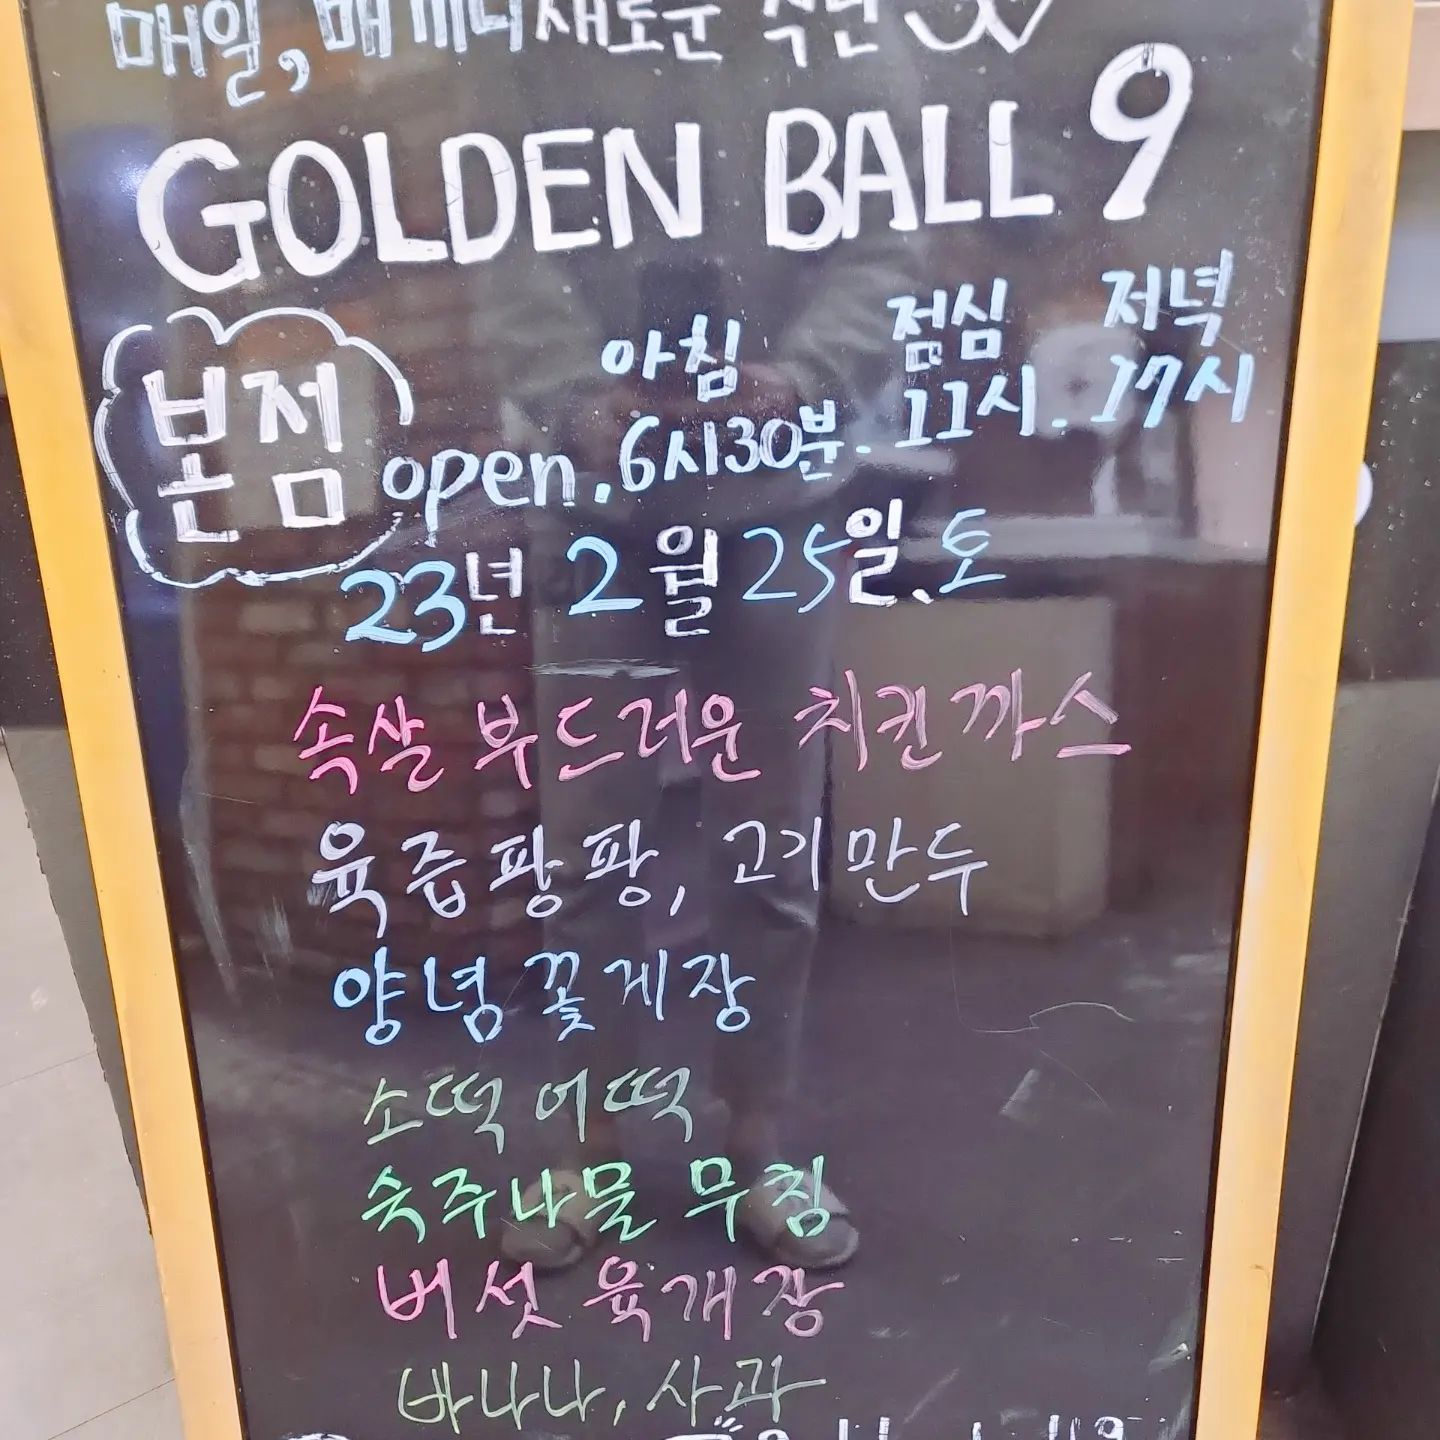 매일, 매끼니 새로운 식단
GOLDEN BALL 9
아침 점심 저녁
본점 open. 6시30분. 11시. 17시
23년 2월 25일. 토
속살 부드러운 치킨까스
육즙팡팡, 고기만두
양념 꽃게장
소떡 어떡
숙주나물 무침
버섯 육개장
바나나, 사과